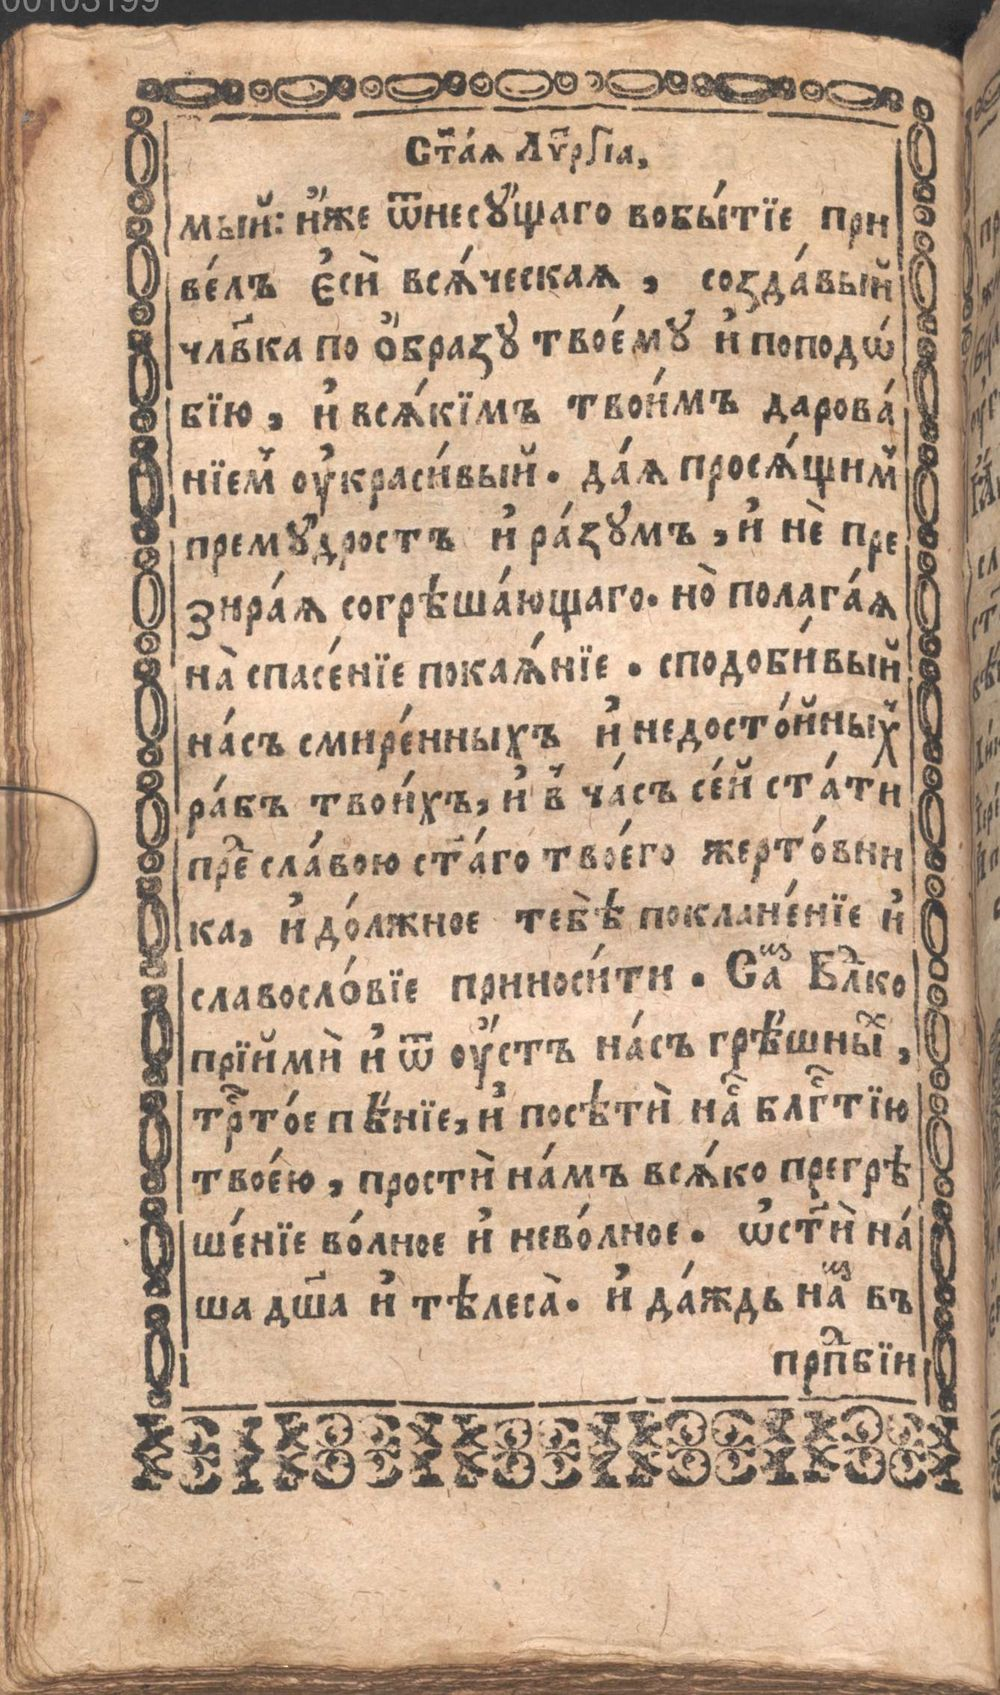 00103199
Ст҃а́ѧ Лѵ҃ргїа,
мый: и҆́же ѿнесꙋ́щаго вобы́тїе при
ве́лъ є҆сѝ всѧ́ческаѧ, созда́вый
члв҃ка по ѻ҆́бразꙋ твоемꙋ̀ и҆ поподѡ́
бїю, и҆ всѧ́кїмъ твои́мъ дарова́
нїемⷨ ᲂу҆краси́вый. даѧ́ просѧ́щимⷨ
премꙋ́дростъ и҆ ра́зꙋмъ, и҆ нѐ пре
зира́ѧ согрѣша́ющаго. но̀ полага́ѧ
на̀ спасе́нїе покаѧ́нїе. сподоби́вый
на́съ смире́нныхъ и҆ недосто́йныⷯ
ра́бъ твои́хъ, и҆ в̾ ча́съ се́й ста́ти
пре́ⷣ сла́вою ст҃а́го твоегѡ̀ жерто́вни
ка, и҆ до́лжное тебѣ̀ покланѣ́нїе и҆
славосло́вїе приноси́ти. Саⷨ҇ Влⷣко
прїймѝ и҆ ѿ ᲂу҆́стъ на́съ грѣ́шныⷯ,
трⷭ҇то́е пѣ́нїе, и҆ посѣтѝ наⷭ҇ блгⷣтїю
твое́ю, простѝ на́мъ всѧ́ко прегрѣ
ше́нїе во́лное и҆ нево́лное. ѡ҆ст҃ѝ на́
ша дш҃а и҆ тѣлеса̀. и҆ да́ждь наⷨ въ
прпⷣбїи